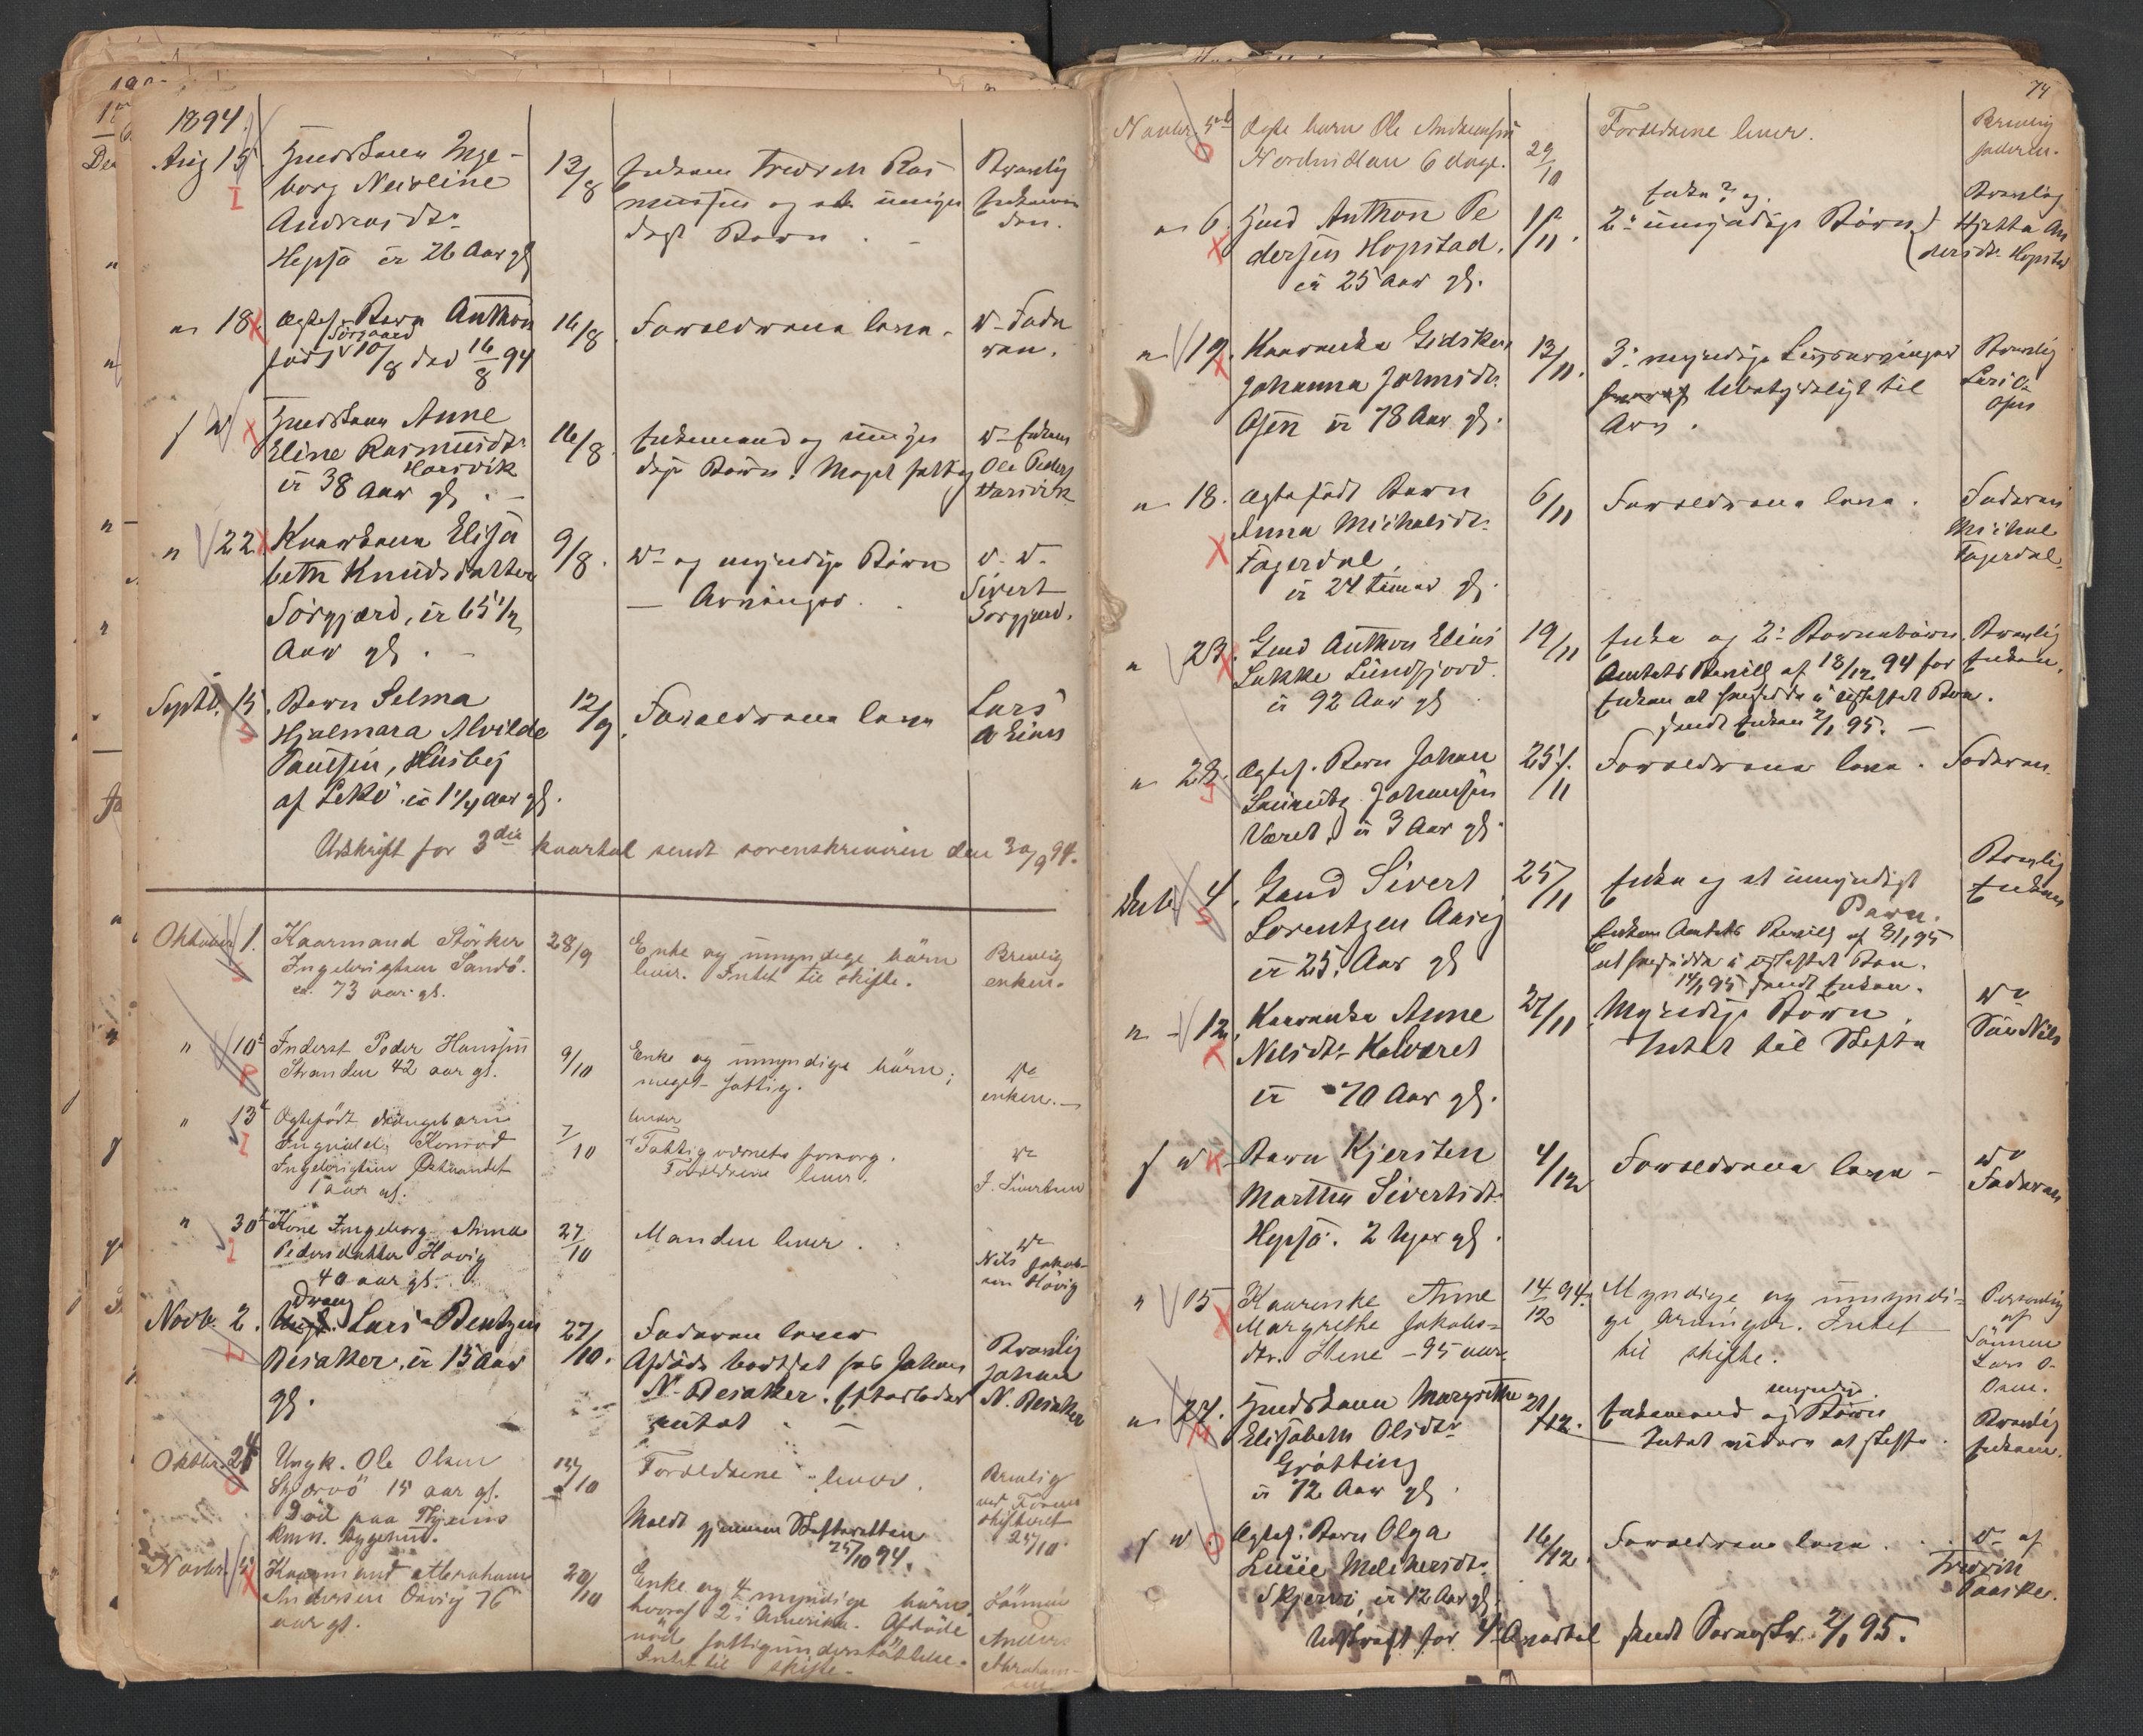 1894
Aug 15 Huuskone Inge-
borg Neuline
Andreasdtr
Hepsö er 26 Aar gl
13/8
Enkem Fredrik Ras
mussen og umyn
dige Børn
Brevlig
Enkeman
den.
" 18 Ægtef. Barn Anthon
Sörgaard
född 10/8 död 16/8 94
16/8
Forældrene leve.
d° Fade
ren.
Huuskone Anne
Eline Rasmusdtr
Harsvik
er 38 Aar gl.
16/8
Enkemand og umyn
dige Børn. Meget fattig
d° Enkem
Ole Peders
Harsvik
" 22 Kaarkone Elisa
beth Knudsdatter
Sörgjærd, er 65 1/2
Aar gl.
9/8.
d° og myndige Børn
— Arvinger.
d. d.
Sivert
Sorgjærd.
Septb. 15. Barn Selma
Hjalmara Alvilde
Paulsen, Husby
af Lekö er 1 1/4 Aar gl.
12/9.
Forældrene leve
Lars
Udskrift for 3die kvartal sendt sorenskriveren den 30/9 94.
Oktober 1. Kaarmand Störker
Ingebrigtsen Sandö.
ca. 73 aar gl.
28/9
Enke og umyndige börn
lever. Intet til skifte.
Brevlig
enken.
" 10. Inderst Peder Hanssen
Stranden 42 aar gl.
9/10
Enke og umyndige börn;
meget fattig.
d°
enken.—
" 13 Ægtefödt drengebarn
Ingvald Konrad
Ingebrigtsen
1 aar gl.
7/10
lever
Fattigvæsnets forsorg.
Forældrene lever.
d°
J. Sivertsen
" 30 Kone Ingeborg Anna
Pedersdatter Hövig
40 aar gl.
27/10
Manden lever.
d°
Nils Jakob-
sen Hövig
Novb. 2. Dreng
Lars Bentzen
Besaker, er 15 Aar
gl.
27/10.
Faderen lever
Afdöde bortsat hos Johan
N. Besaker. Efterlader
intet.
Brevlig
Johan
N. Besaker
Oktbr. 24 Ungk. Ole Olsen
Skjærvö 15 aar gl.
Död paa
Forældrene lever.
Meldt gjennem Skifteretten
25/10 94.
Brevlig
25/10.
Novbr. Kaarmand Abraham
Andersen Osvig 76
aar gl.
20/10
Enke og 4 myndige börn,
hvoraf 2 i Amerika. Afdöde
nöd fattigunderstöttelse.
Intet til skifte.
Sönnen
Anders
Abraham-
sen.
74
Novbr. 5 Ægte barn Ole Andreassen
Nordmelan 6 dage.
29/10
Forældrene lever.
Brevlig
faderen.
" 6. Gmd Anthon Pe
dersen Hopstad,
er 25 Aar gl.
1/11.
Enke og
2 umyndige Børn
Brevlig
An
dersdtr Hopstad
" 19. Kaarenke Gidsken
Johanna Johnsdtr
Osen er 78 Aar gl.
13/11.
3 myndige Livsarvinger
Ubetydeligt til
Arv.
Brevlig
Osen
" 18. Ægtefødt Barn
Anna Michalsdtr
Fagerdal
er 24 timer gl.
6/11
Forældrene leve.
Faderen
Michal
Fagerdal.
" 23. Gmd Anthon Elias
Lakke Sundfjord.
er 92 Aar gl
19/11
Enke og 2 Barnebørn.
Amtets Bevilg af 18/12 94 for
Enken at hensidde i uskiftet Bo.
sendt Enken 2/1 95.—
Brevlig
Enken.
" 28. Ægtef. Barn Johan
Lauritz Johansen
Været, er 3 Aar gl.
25/11
Forældrene leve.
Faderen.
Decb. 4. Gmd Sivert
Lorentzen
er 25 Aar gl
25/11
Enke og et umyndigt
Barn.
Enken Amtets Bevilg af 8/1 95
at hensidde i uskiftet Bo.
14/1 95 sendt Enken.
Brevlig
Enken
" 12. Kaarenke Anne
Nilsdtr Kalværet
er 70 Aar gl.
27/11
Myndige Børn.
Intet til Skifte
d°
Sön Nils
Barn Kjersten
Martha Sivertsdtr
Hepsö. 2 Uger gl.
4/12
Forældrene leve —
d°
Faderen
" 15 Kaarenke Anne
Margrethe Jakobs-
dtr. Stene — 95 aar
14/12 94.
Myndige og umyndi-
ge arvinger. Intet
til skifte.
Personlig
af
Sönnen
Lars O.
Osen.
" 27. Huuskone Margrethe
Elisabeth Olsdtr
Grötting
er 72 Aar gl.
21/12.
myndige.
Enkemand og Børn
Intet videre at skifte.
Brevlig
Enkem.
Ægtef. Barn Olga
Lucie Melchersdtr
Skjervö, er 12 Aar gl.
16/12.
Forældrene leve.
d° af
Fredrik
Paaske.
Udskrift for 4. Qvartal sendt Sorenskr. 2/1 95.